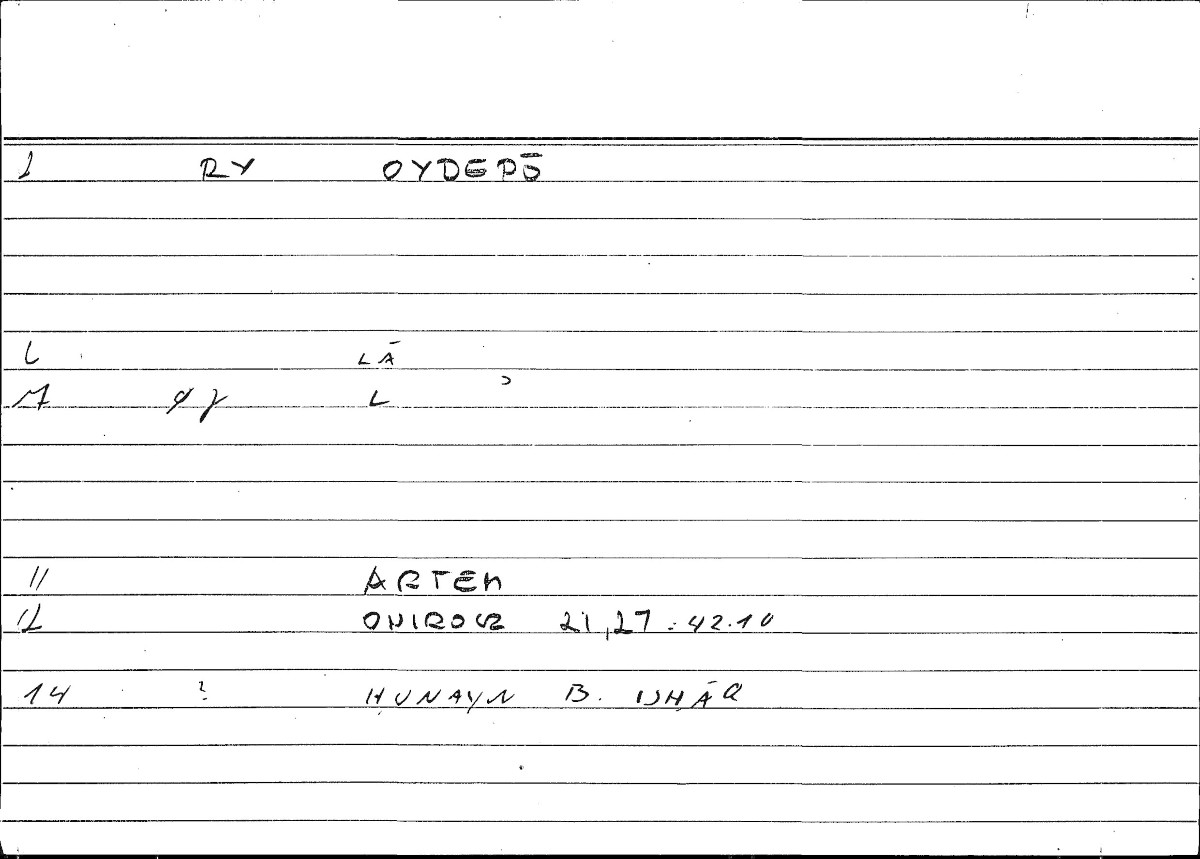 1 RY OYDEPŌ
L LĀ
L
11 ARTEM
12 ONIROCR 21,27 : 42.10
14 ? ḤUNAYN B. ISḤĀQ